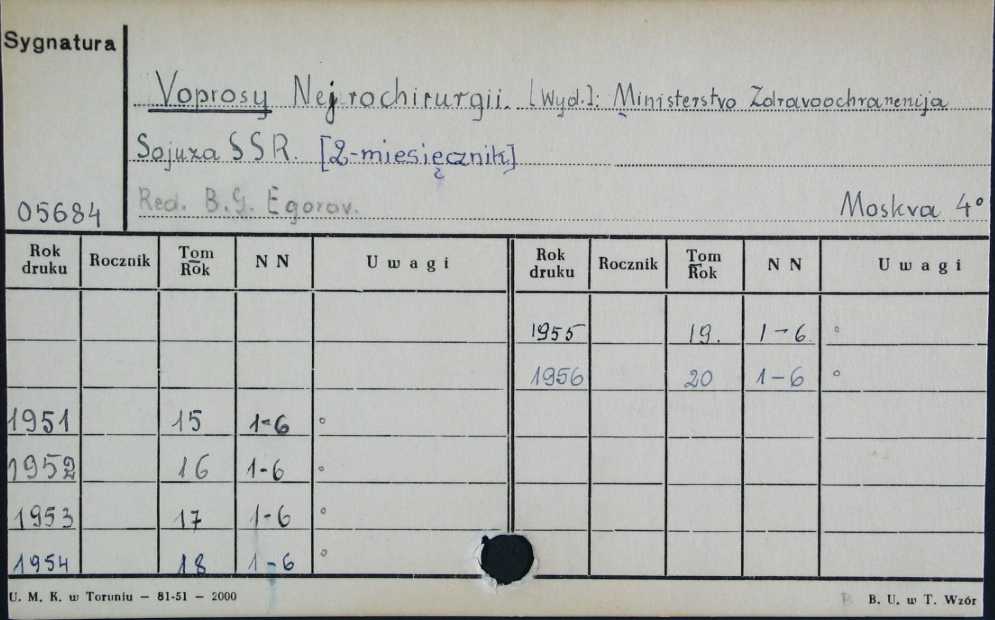 Sygnatura
Voprosy Nejrochirurgii. [Wyd.]: Ministerstvo Zdravoochranenija
Sojuza SSR. [2-miesięcznik]
05684 Red. B.G. Egorov. Moskva 4°
Rok druku Rocznik Tom Rok NN Uwagi Rok druku Rocznik Tom Rok NN Uwagi
1955 19. 1-6 °
1956 20 1-6 °
1951 15 1-6 °
1952 16 1-6 °
1953 17 1-6 °
1954 18 1-6 °
U. M. K. w Toruniu — 81-51 — 2000 B. U. w T. Wzór